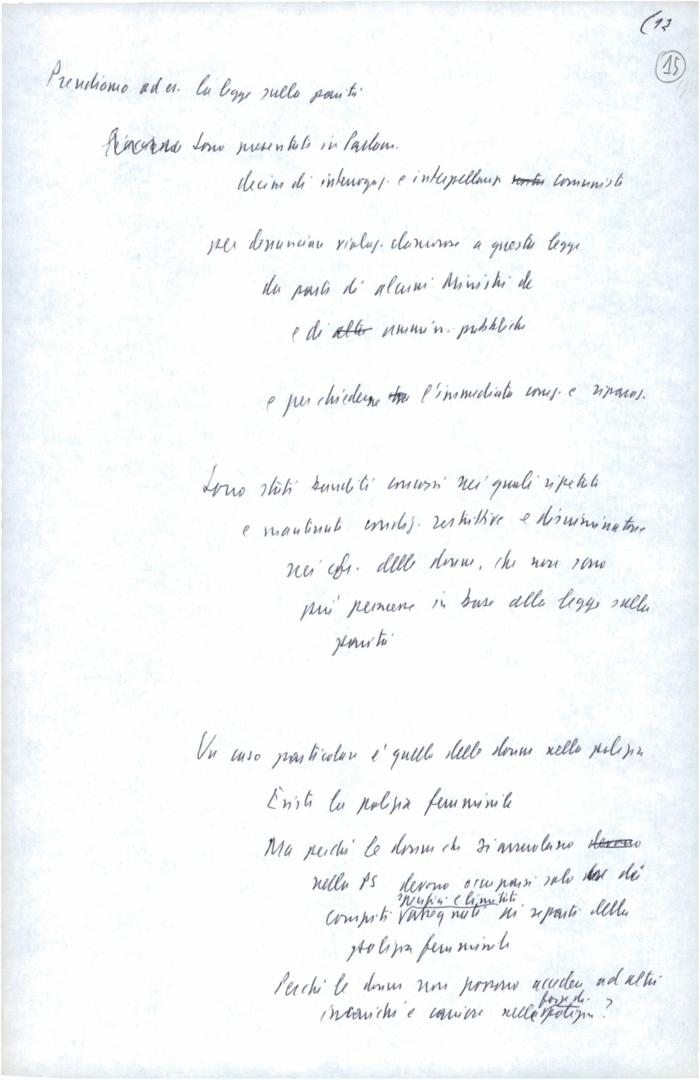 (12
15
Prendiamo ad es. la legge sulla parità
Sono presentate in Parlam.
decine di interrogaz. e interpellanze comuniste
per denunciare violaz. clamorose a questa legge
da parte di alcuni Ministri dc
e di altre ammin. pubbliche
e per chiederne l'immediata correz. e riparaz.
Sono stati banditi concorsi nei quali ripetute
e mantenute condiz. restrittive e discriminatorie
nei cfr. delle donne, che non sono
più permesse in base alla legge sulla
parità
Un caso particolare è quello delle donne nella polizia
Esiste la polizia femminile
Ma perché le donne che si arruolano devono
nella PS devono occuparsi solo dei
specifici e limitati
compiti assegnati ai reparti della
polizia femminile
Perché le donne non possono accedere ad altri
forze di
incarichi e carriere nella polizia?